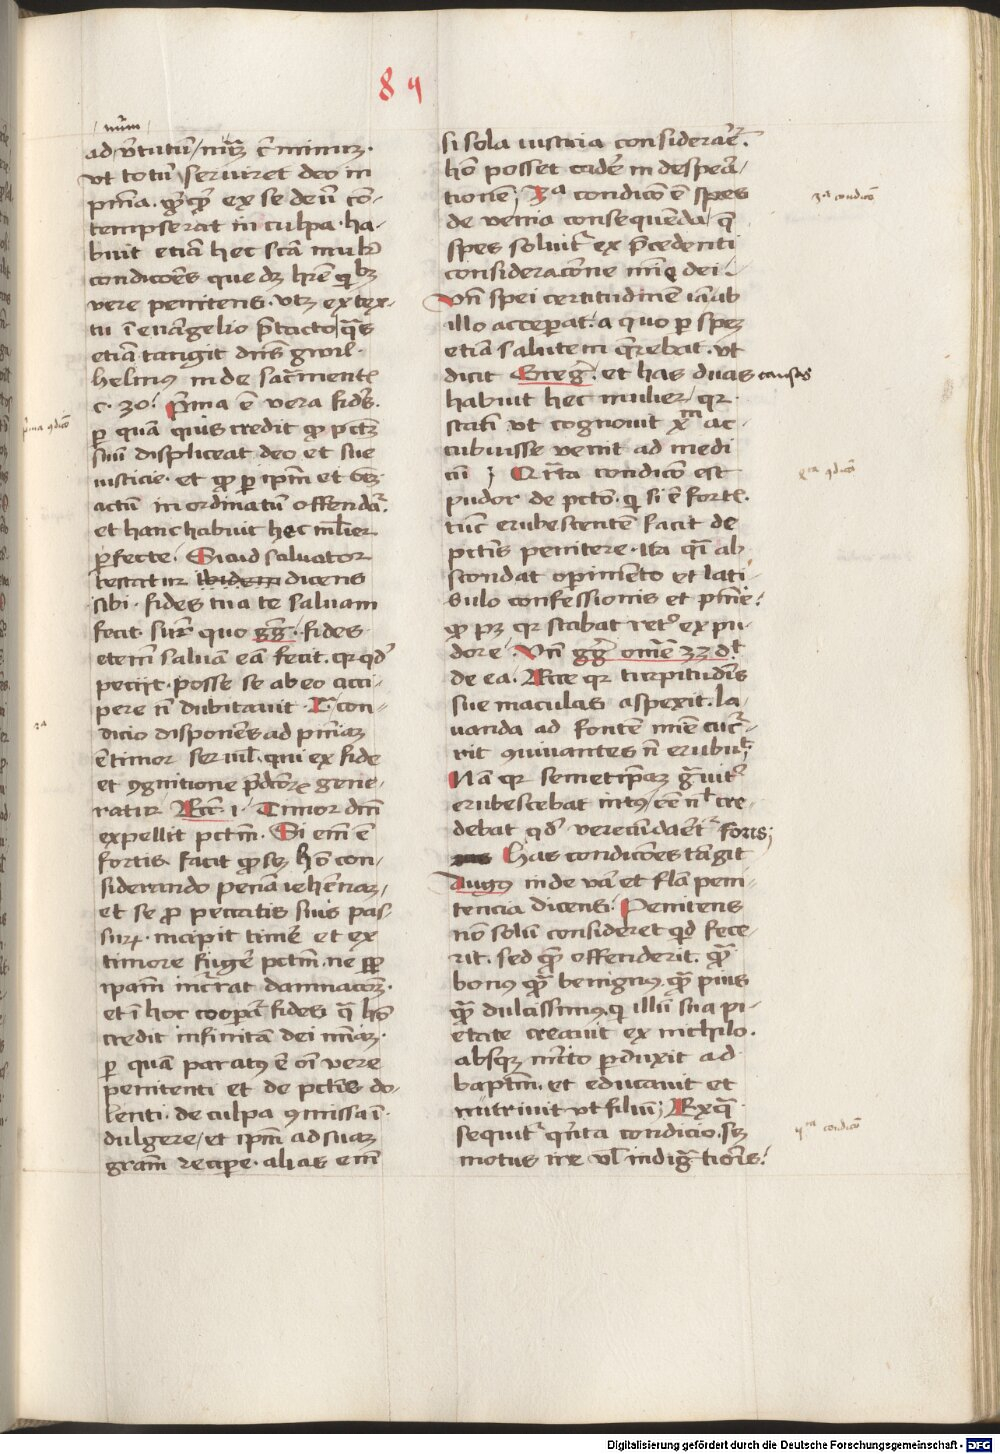 84
nūm
ad v̄tutū / nūꝝ c̄minum·
vt totū serviret deo in
pn̄ia· q̄cq̄ ex se deū cō-
tempserat in culpa· ha-
buit etiā hec scā mulꝰ
condicōes que dꝫ hr̄e qͥbꝫ
vere penitens· vtꝫ ex tex-
tu ī evāngelio p̄tacto q̄s
etiā tangit dn̄s gwil-
helmꝰ in de sac̄ment̄
c· 30· p̄ma ē vera fid̄s·
p quā quis credit qꝫ pctm̄
suū displiceat deo et sue
iusticie· et qꝫ p ipm̄
actum inordinatū offendat̄·
et hanc habuit hec ml̄ier
p̄fecte· Sicud saluator
testatur ibidem dicens
sibi· fides tua te saluam
fecit· sup̄ quo gḡ· fides
etem̄ saluā eā fecit· qꝛ qd̄
peciit· posse se ab eo acci-
pere nō dubitauit· 2ᵃ con-
dicio disponēs ad pn̄iam
ē timor seruīl· qui ex fide
et ꝯgnitione p̄dcōꝝ gene-
ratur Ecc̄· 1· Timor dn̄i
expellit pctm̄· Si em̄ ē
fortis facit qꝫ hō con-
siderando penā iehennaꝫ,
et se ꝓ peccatis suis pas-
surꝝ· incipit timē et ex
timore fuge pctm̄· ne
ipam incurrat damnacōꝫ·
et ī hoc coopat̄ fides q̄ hō
credit infinitā dei mīaꝫ·
p quā paratꝰ ē oī vere
penitenti et de pctīs do-
lenti· de culpa ꝯmissa ī-
dulgere / et ipm̄ ad suaꝫ
gram̄ recipe· alias em̄
si sola iusticia considerar̄et·
hō posset cadē in despera-
tionē; 3ᵃ condicō ē spes
de venia consequenda / q̄
spes soluit̄ ex p̄cedenti
consideracōne mīe dei·
Vn̄ spei certitudinē iā ab
illo acceperat· a quo p speꝫ
etiā salutem q̄rebat· vt
dicit Greg̅· et has duas causas
habuit hec mulier / qꝛ
statī vt cognouit xᵐ ac-
cubuisse venit ad medi
cū ; Qr̄ta condicō est
pudor de pctō· qͥ si ē fort̄·
tūc erubescentē facit de
pctīs penitere· ita qd̄ ab
scondat opimēto et lati-
bulo confessionis et pn̄ie·
qꝫ pꝫ qꝛ stabat retᵒ ex pu-
dore· Vn̄ gg̅ omē 33 dt̄
de ea· Ecce qꝛ turpitudīs
sue maculas aspexit· la-
uanda ad fontē mīe cucᵣ-
rit ꝯuiuantes nō erubuīt;
Nam qꝛ semetip̄am g̅uit̄
erubescebat intꝰ / eē nīl cre-
debat qd̄ verecūdarēt̄ foris;
Has condicōes tāgit
Augꝰ in de vā et flā peni-
tencia dicens· Penitens
nō solū consideret qd̄ fece-
rit· sed q̄ offenderit· q̄
bonꝰ q̄ benignꝰ· q̄ pius
q̄ dulcissimꝰ· qͥ illū sua pi-
etate creauit ex nichilo·
absqꝫ mīto p̄duxit ad
baptm̄· et educauit et
nutriuit vt filiū; Ex q̄
sequit̄ qn̄ta condicio· sꝫ
motus ire vl̄ indigᵃtiōis·
p̄ma ꝯdicō
2ᵃ
3ᵃ condicō
4ᵗᵃ ꝯdicō
5ᵗᵃ condicō
Digitalisierung gefördert durch die Deutsche Forschungsgemeinschaft - DFG